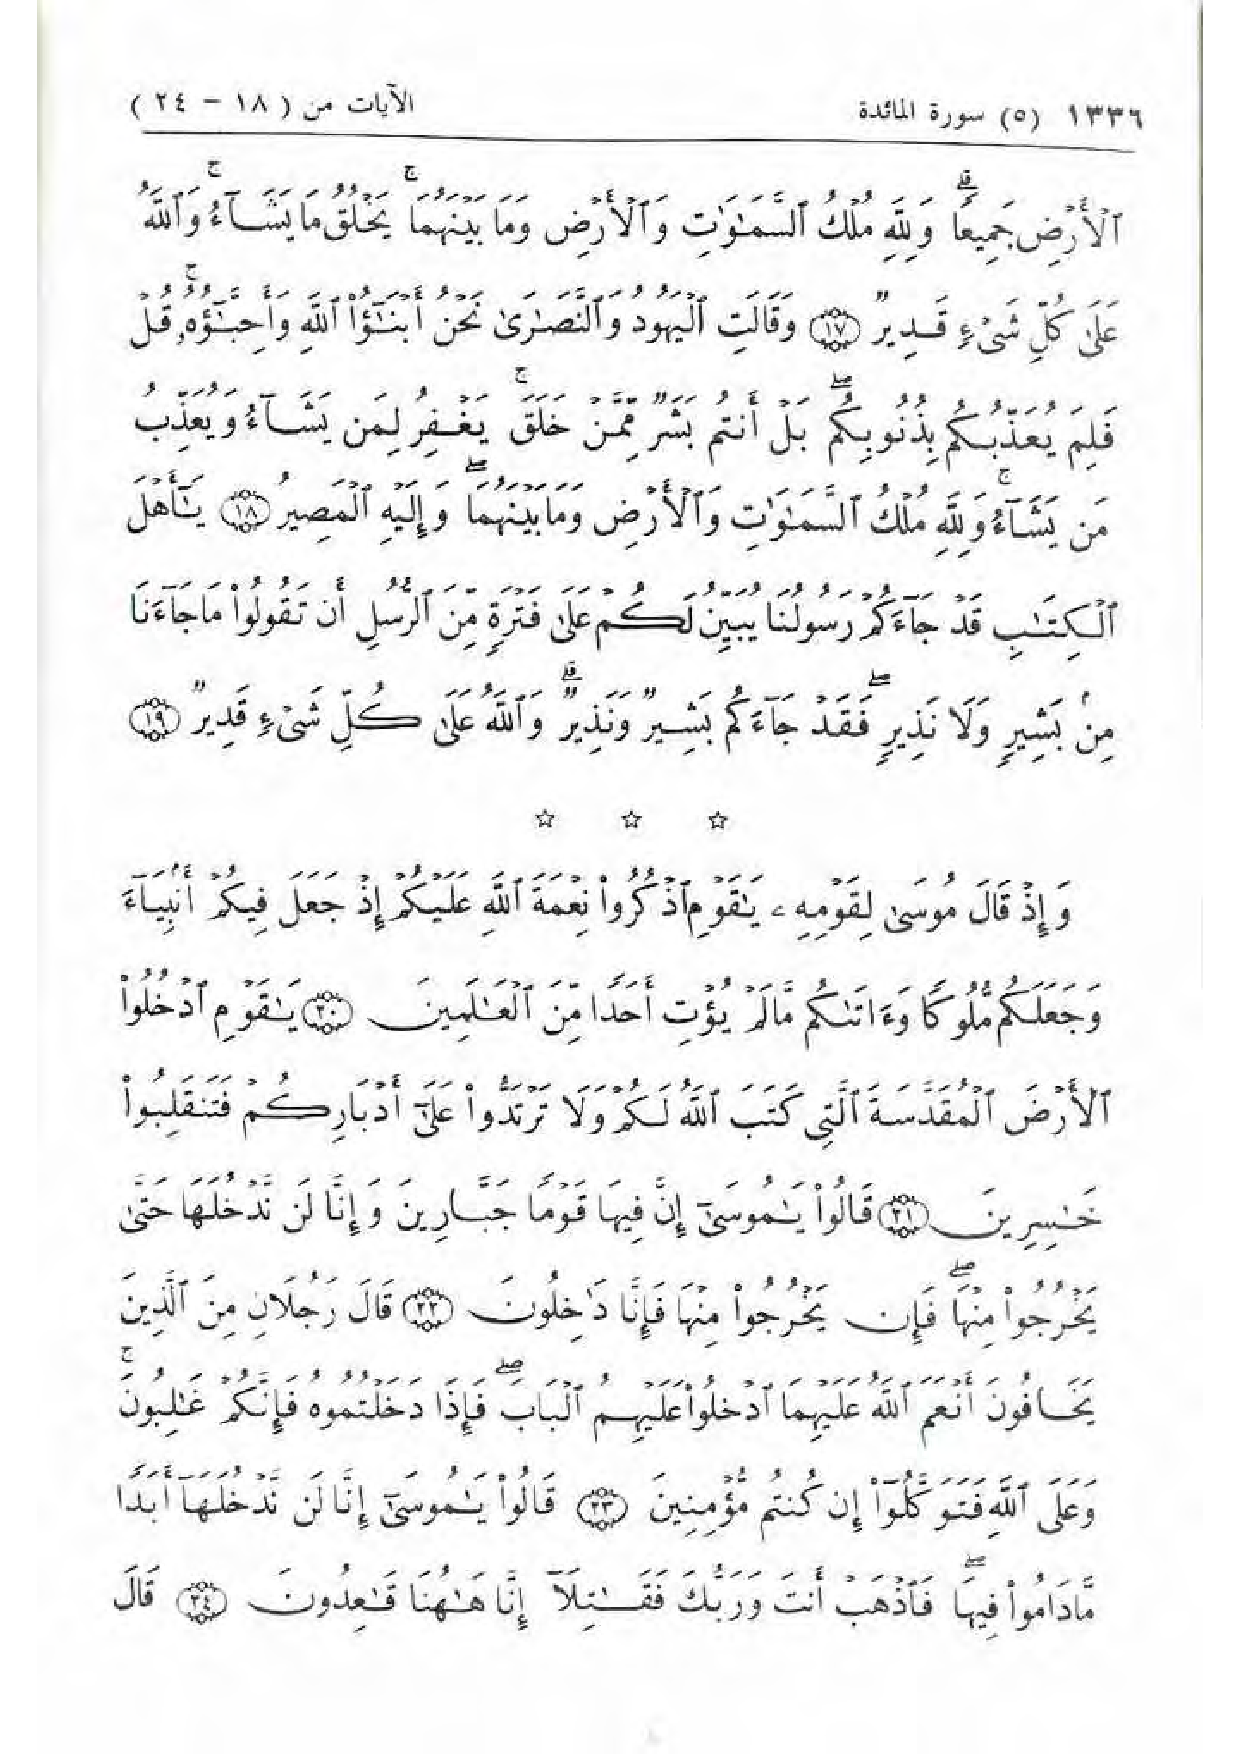 ١٣٣٦ (٥) سورة المائدة الآيات من ( ١٨ – ٢٤ )
ٱلْأَرْضِ جَمِيعًا ۗ وَلِلَّهِ مُلْكُ ٱلسَّمَٰوَٰتِ وَٱلْأَرْضِ وَمَا بَيْنَهُمَا ۚ يَخْلُقُ مَا يَشَآءُ ۚ وَٱللَّهُ
عَلَىٰ كُلِّ شَىْءٍ قَدِيرٌ ﴿١٧﴾ وَقَالَتِ ٱلْيَهُودُ وَٱلنَّصَٰرَىٰ نَحْنُ أَبْنَٰٓؤُا۟ ٱللَّهِ وَأَحِبَّٰٓؤُهُۥ ۚ قُلْ
فَلِمَ يُعَذِّبُكُم بِذُنُوبِكُم ۖ بَلْ أَنتُم بَشَرٌ مِّمَّنْ خَلَقَ ۚ يَغْفِرُ لِمَن يَشَآءُ وَيُعَذِّبُ
مَن يَشَآءُ ۚ وَلِلَّهِ مُلْكُ ٱلسَّمَٰوَٰتِ وَٱلْأَرْضِ وَمَا بَيْنَهُمَا ۖ وَإِلَيْهِ ٱلْمَصِيرُ ﴿١٨﴾ يَٰٓأَهْلَ
ٱلْكِتَٰبِ قَدْ جَآءَكُمْ رَسُولُنَا يُبَيِّنُ لَكُمْ عَلَىٰ فَتْرَةٍ مِّنَ ٱلرُّسُلِ أَن تَقُولُوا۟ مَا جَآءَنَا
مِنۢ بَشِيرٍ وَلَا نَذِيرٍ ۖ فَقَدْ جَآءَكُم بَشِيرٌ وَنَذِيرٌ ۗ وَٱللَّهُ عَلَىٰ كُلِّ شَىْءٍ قَدِيرٌ ﴿١٩﴾
☆ ☆ ☆
وَإِذْ قَالَ مُوسَىٰ لِقَوْمِهِۦ يَٰقَوْمِ ٱذْكُرُوا۟ نِعْمَةَ ٱللَّهِ عَلَيْكُمْ إِذْ جَعَلَ فِيكُمْ أَنۢبِيَآءَ
وَجَعَلَكُم مُّلُوكًا وَءَاتَىٰكُم مَّا لَمْ يُؤْتِ أَحَدًا مِّنَ ٱلْعَٰلَمِينَ ﴿٢٠﴾ يَٰقَوْمِ ٱدْخُلُوا۟
ٱلْأَرْضَ ٱلْمُقَدَّسَةَ ٱلَّتِى كَتَبَ ٱللَّهُ لَكُمْ وَلَا تَرْتَدُّوا۟ عَلَىٰٓ أَدْبَارِكُمْ فَتَنقَلِبُوا۟
خَٰسِرِينَ ﴿٢١﴾ قَالُوا۟ يَٰمُوسَىٰٓ إِنَّ فِيهَا قَوْمًا جَبَّارِينَ وَإِنَّا لَن نَّدْخُلَهَا حَتَّىٰ
يَخْرُجُوا۟ مِنْهَا ۖ فَإِن يَخْرُجُوا۟ مِنْهَا فَإِنَّا دَٰخِلُونَ ﴿٢٢﴾ قَالَ رَجُلَانِ مِنَ ٱلَّذِينَ
يَخَافُونَ أَنْعَمَ ٱللَّهُ عَلَيْهِمَا ٱدْخُلُوا۟ عَلَيْهِمُ ٱلْبَابَ ۖ فَإِذَا دَخَلْتُمُوهُ فَإِنَّكُمْ غَٰلِبُونَ ۚ
وَعَلَى ٱللَّهِ فَتَوَكَّلُوٓا۟ إِن كُنتُم مُّؤْمِنِينَ ﴿٢٣﴾ قَالُوا۟ يَٰمُوسَىٰٓ إِنَّا لَن نَّدْخُلَهَآ أَبَدًا
مَّا دَامُوا۟ فِيهَا ۖ فَٱذْهَبْ أَنتَ وَرَبُّكَ فَقَٰتِلَآ إِنَّا هَٰهُنَا قَٰعِدُونَ ﴿٢٤﴾ قَالَ